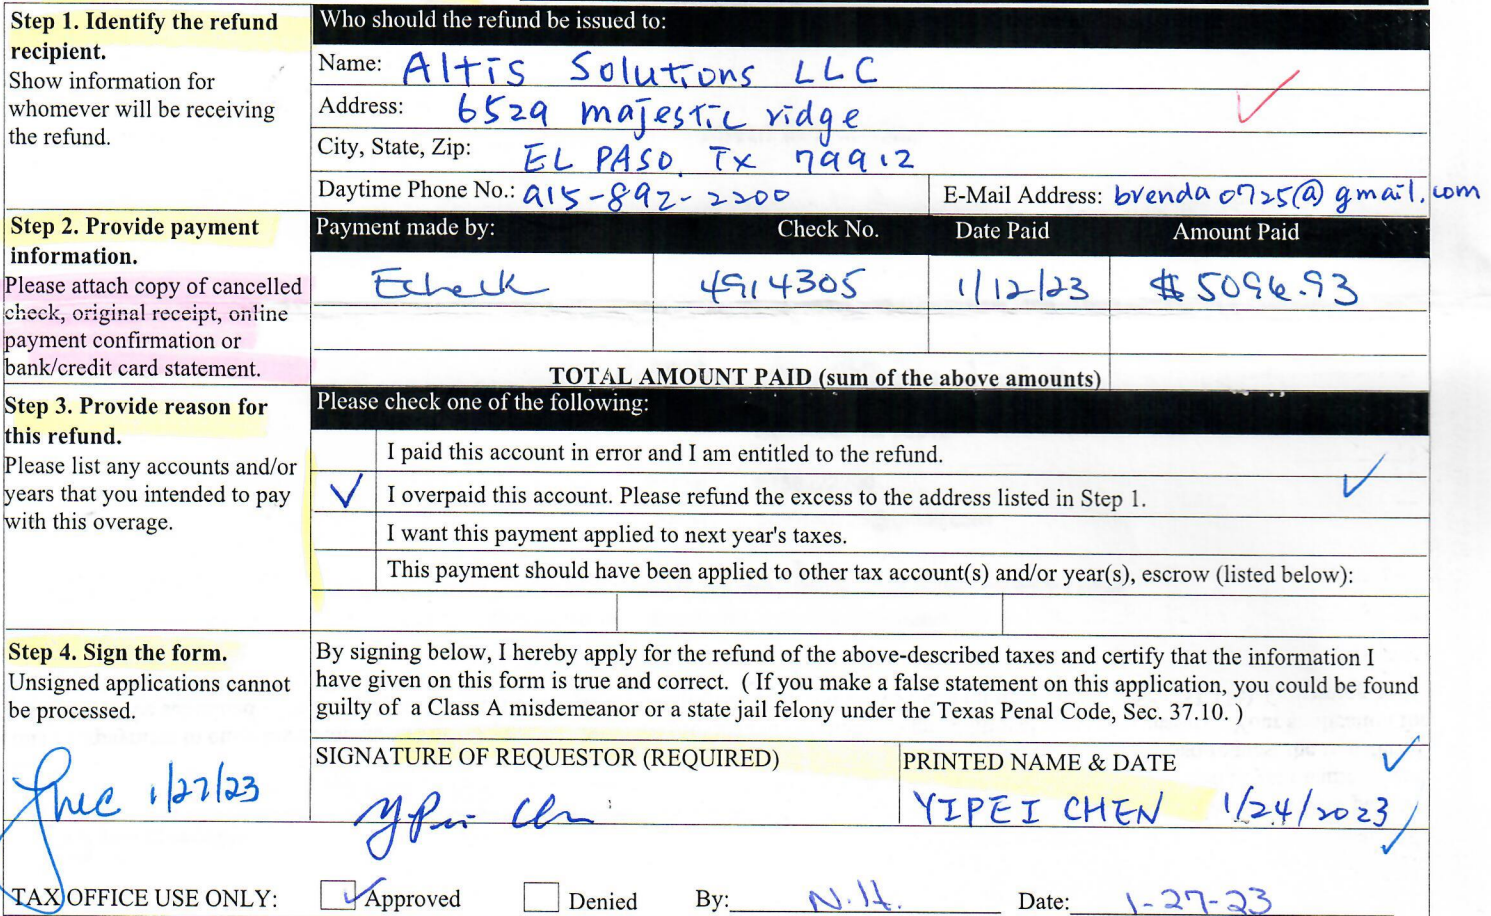 Step 1. Identify the refund recipient.
Show information for whomever will be receiving the refund.
Who should the refund be issued to:
Name: Altis Solutions LLC
Address: 6529 majestic ridge
City, State, Zip: EL PASO, TX 79912
Daytime Phone No.: 915-892-2200
E-Mail Address: brenda0725@gmail.com
Step 2. Provide payment information.
Please attach copy of cancelled check, original receipt, online payment confirmation or bank/credit card statement.
Payment made by: Check No. Date Paid Amount Paid
Echeck 4914305 1/12/23 $5096.93
TOTAL AMOUNT PAID (sum of the above amounts)
Step 3. Provide reason for this refund.
Please list any accounts and/or years that you intended to pay with this overage.
Please check one of the following:
I paid this account in error and I am entitled to the refund.
✓ I overpaid this account. Please refund the excess to the address listed in Step 1.
I want this payment applied to next year's taxes.
This payment should have been applied to other tax account(s) and/or year(s), escrow (listed below):
Step 4. Sign the form.
Unsigned applications cannot be processed.
By signing below, I hereby apply for the refund of the above-described taxes and certify that the information I
have given on this form is true and correct. ( If you make a false statement on this application, you could be found
guilty of a Class A misdemeanor or a state jail felony under the Texas Penal Code, Sec. 37.10. )
SIGNATURE OF REQUESTOR (REQUIRED)
PRINTED NAME & DATE
YIPEI CHEN 1/24/2023
1/27/23
TAX OFFICE USE ONLY: ✓ Approved Denied By: N.H. Date: 1-27-23